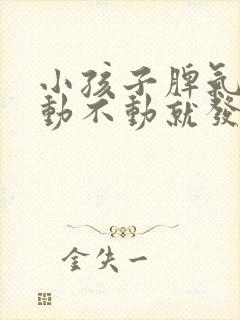 小孩子脾氣
動不動就發
金失一